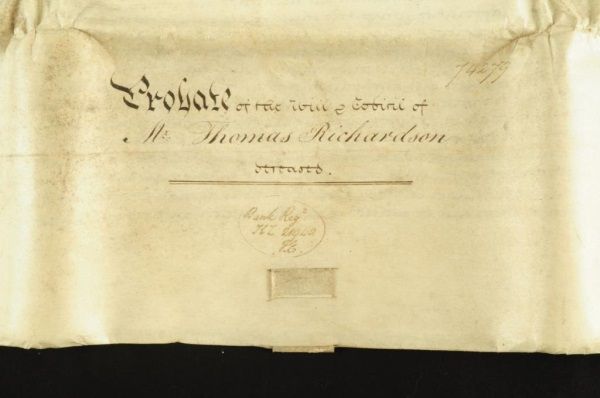 74279
Probate of the Will & Codicil of
Mr. Thomas Richardson
deceased.
Bank Regd